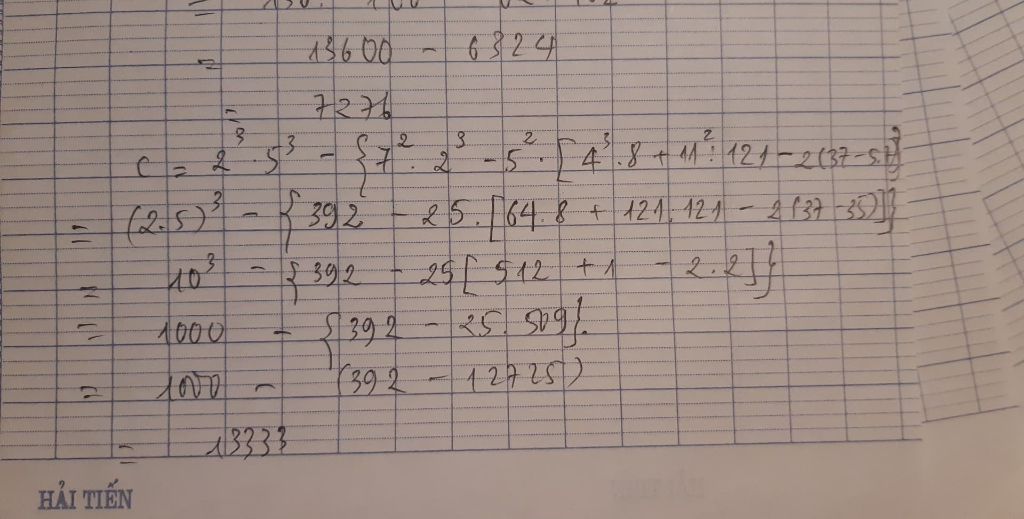 = 13600 - 6324
= 7276
C = 2³ . 5³ - {7² . 2³ - 5² . [4³ . 8 + 11² : 121 - 2(37 - 5.7)]}
= (2.5)³ - {392 - 25 . [64.8 + 121:121 - 2(37 - 35)]}
= 10³ - {392 - 25 [512 + 1 - 2.2]}
= 1000 - {392 - 25 . 509}.
= 1000 - (392 - 12725)
= 13333
HẢI TIẾN